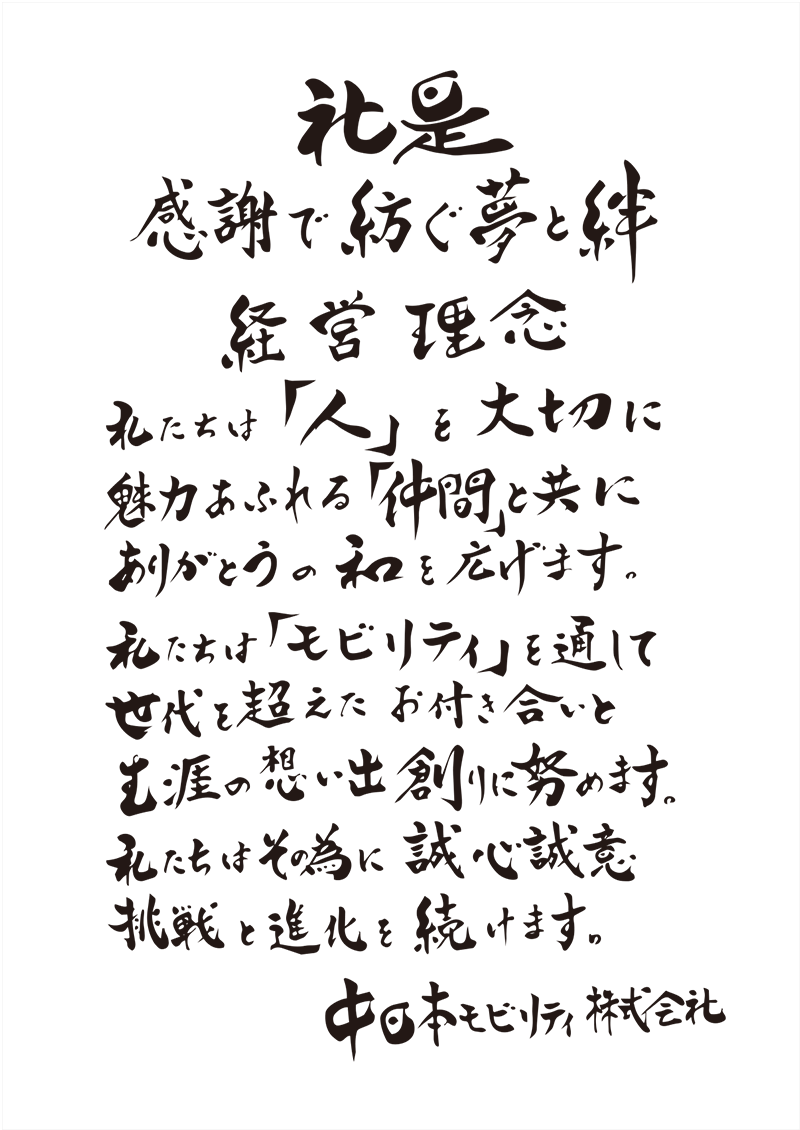 社是
感謝で紡ぐ夢と絆
経営理念
私たちは「人」を大切に
魅力あふれる「仲間」と共に
ありがとうの和を広げます。
私たちは「モビリティ」を通して
世代を超えたお付き合いと
生涯の想い出創りに努めます。
私たちはその為に誠心誠意
挑戦と進化を続けます。
中日本モビリティ株式会社